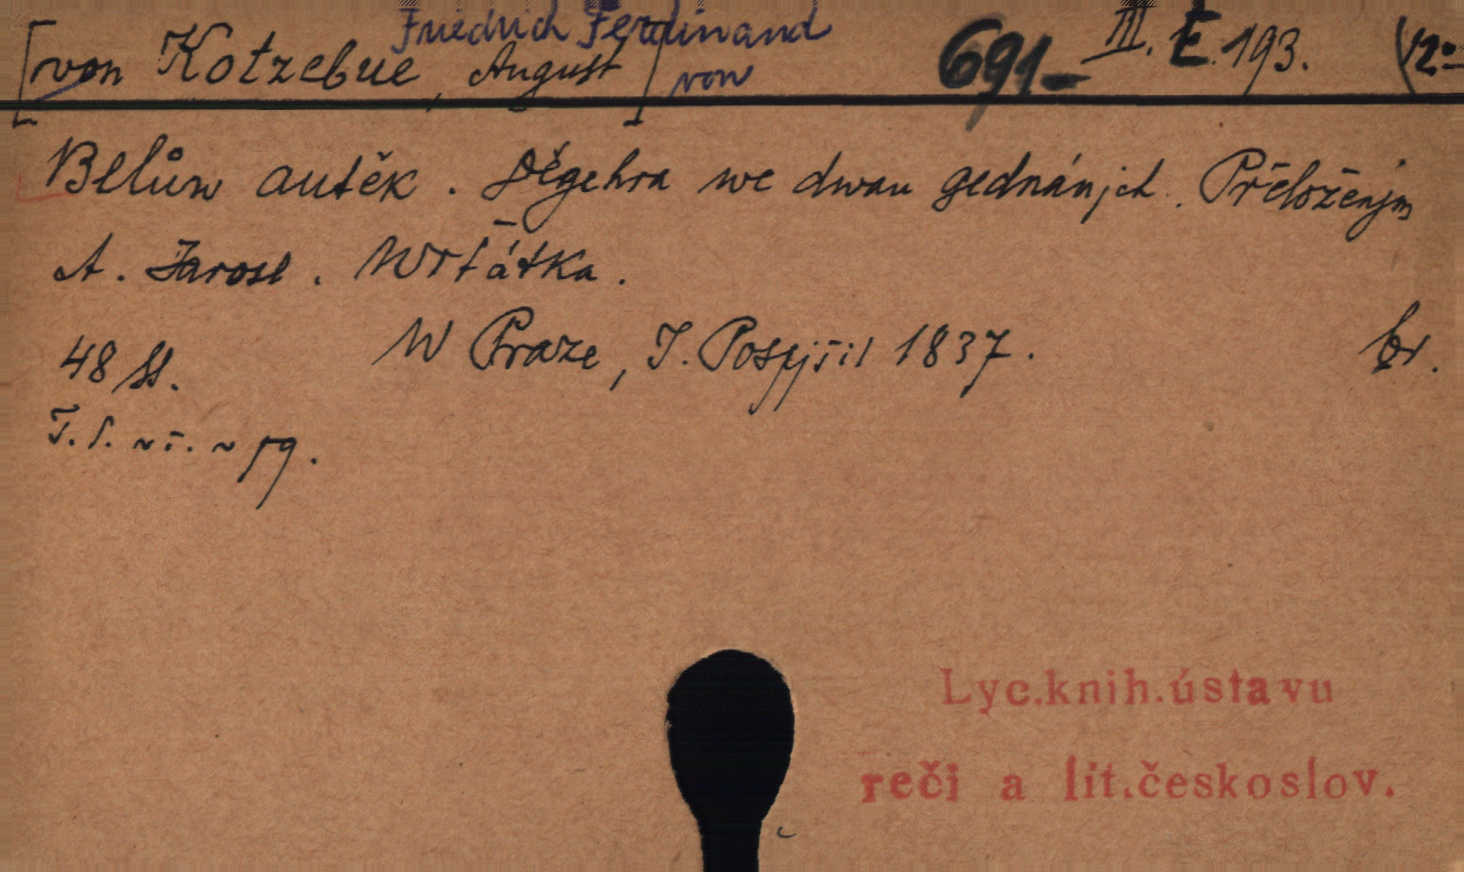 [von Kotzebue, August] Friedrich Ferdinand von 691- III. E. 193. (12°
Belůw autěk. Děgehra we dwau gednánjch. Přeloženjm
A. Jarosl. Wrťátka.
W Praze, J. Pospjšil 1837. br.
48 ss.
Lyc.knih.ústavu
reči a lit.českoslov.